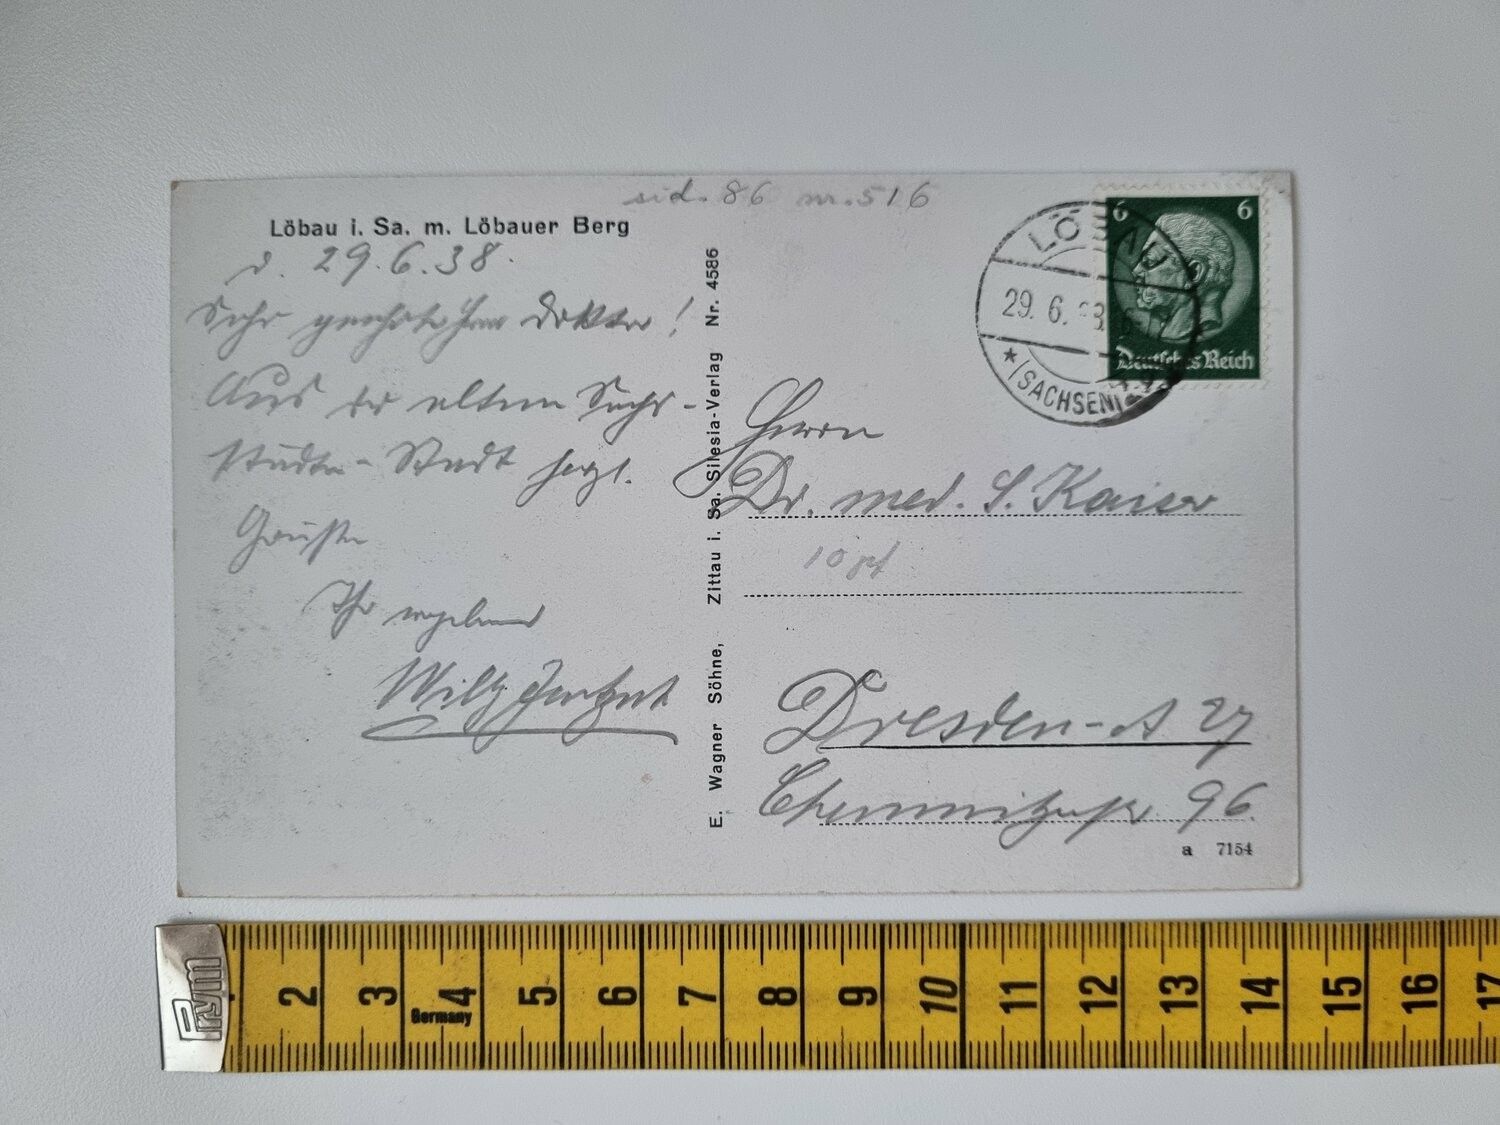 sid. 86 nr. 516
Löbau i. Sa. m. Löbauer Berg
d. 29.6.38.
Sehr geehrter Herr Doktor!
Aus der alten Sechs-
städte-Stadt herzl.
Grüße
Ihr ergebener
Willy
E. Wagner Söhne, Zittau i. Sa. Silesia-Verlag Nr. 4586
LÖBAU
29. 6. 38
* (SACHSEN)
6 6
Deutsches Reich
Herrn
Dr. med. S. Kaiser
10 pf
Dresden-A 27
Chemnitzerstr. 96.
a 7154
Prym
2 3 4 5 6 7 8 9 10 11 12 13 14 15 16 17
Germany